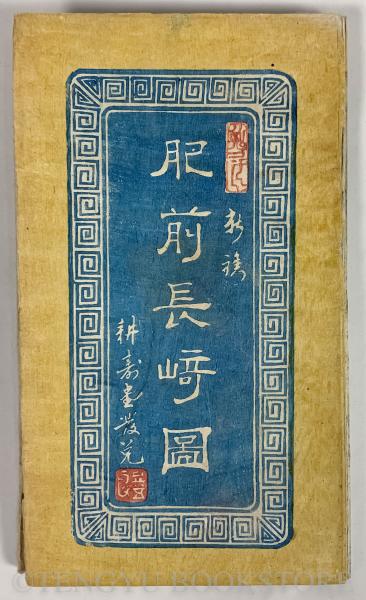 新鐫
肥前長﨑圖
耕壽堂發兌
© TENGYU BOOKSTORE